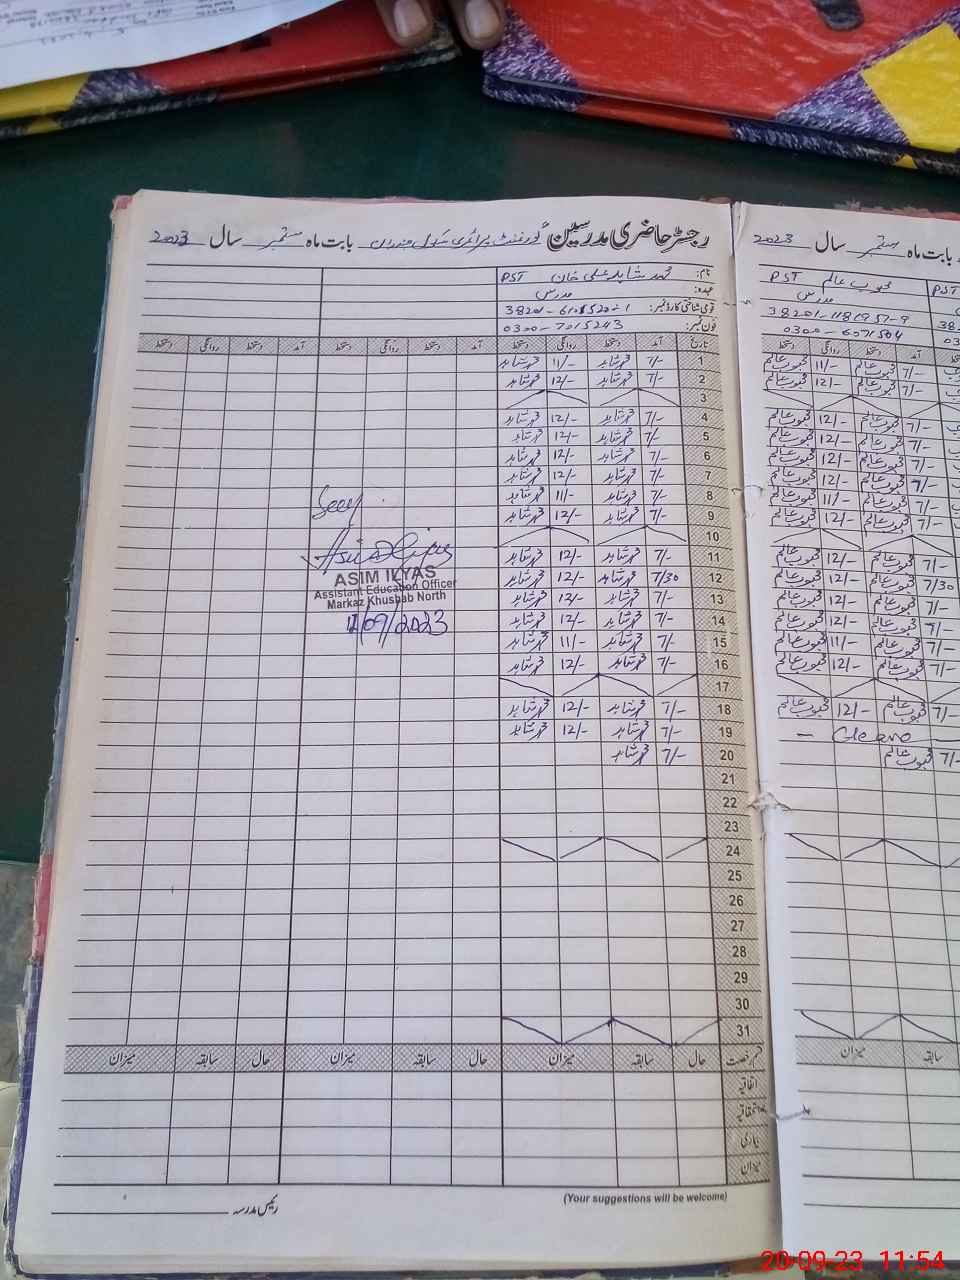 رجسٹر حاضری مدرسین گورنمنٹ پرائمری سکول بابت ماہ ستمبر سال 2023
نام: محمد شاہد علی خان PST
عہدہ: مدرس
قومی شناختی کارڈ نمبر: 38201-6105520-1
فون نمبر: 0300-7015243
تاریخ آمد دستخط روانگی دستخط آمد دستخط روانگی دستخط آمد روانگی دستخط
1 7/- محمد شاہد 11/- محمد شاہد
2 7/- محمد شاہد 12/- محمد شاہد
3
4 7/- محمد شاہد 12/- محمد شاہد
5 7/- محمد شاہد 12/- محمد شاہد
6 7/- محمد شاہد 12/- محمد شاہد
7 7/- محمد شاہد 12/- محمد شاہد
8 7/- محمد شاہد 11/- محمد شاہد
9 7/- محمد شاہد 12/- محمد شاہد
10
11 7/- محمد شاہد 12/- محمد شاہد
12 7/30 محمد شاہد 12/- محمد شاہد
13 7/- محمد شاہد 12/- محمد شاہد
14 7/- محمد شاہد 12/- محمد شاہد
15 7/- محمد شاہد 11/- محمد شاہد
16 7/- محمد شاہد 12/- محمد شاہد
17
18 7/- محمد شاہد 12/- محمد شاہد
19 7/- محمد شاہد 12/- محمد شاہد
20 7/- محمد شاہد
21
22
23
24
25
26
27
28
29
30
31
Seen
Asim Ilyas
ASIM ILYAS
Assistant Education Officer
Markaz Khushab North
12/09/2023
قسم رخصت حال سابقہ میزان حال سابقہ میزان حال سابقہ میزان
اتفاقیہ
استحقاقیہ
بیماری
میزان
(Your suggestions will be welcome)
رئیس مدرسہ
بابت ماہ ستمبر سال 2023
PST محبوب عالم PST
مدرس
38201-1181957-9
0300-6071504
آمد دستخط روانگی دستخط
7/- محبوب عالم 11/- محبوب عالم
7/- محبوب عالم 12/- محبوب عالم
7/- محبوب عالم 12/- محبوب عالم
7/- محبوب عالم 12/- محبوب عالم
7/- محبوب عالم 12/- محبوب عالم
7/- محبوب عالم 12/- محبوب عالم
7/- محبوب عالم 11/- محبوب عالم
7/- محبوب عالم 12/- محبوب عالم
7/- محبوب عالم 12/- محبوب عالم
7/30 محبوب عالم 12/- محبوب عالم
7/- محبوب عالم 12/- محبوب عالم
7/- محبوب عالم 12/- محبوب عالم
7/- محبوب عالم 11/- محبوب عالم
7/- محبوب عالم 12/- محبوب عالم
7/- محبوب عالم 12/- محبوب عالم
7/- محبوب عالم
سابقہ میزان
20-09-23 11:54